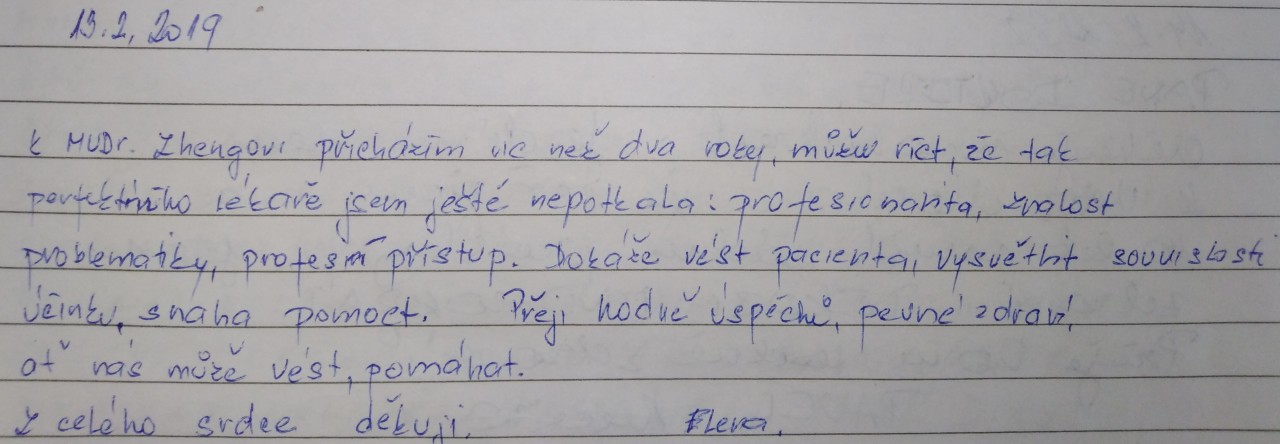 13.2, 2019
k MUDr. Zhengovi přicházím víc než dva roky, můžu říct, že tak
perfektního lékaře jsem ještě nepotkala: profesionalita, znalost
problematiky, profesní přístup. Dokáže vést pacienta, vysvětlit souvislosti
účinku, snaha pomoct. Přeji hodně úspěchů, pevné zdraví,
ať nás může vést, pomáhat.
Z celého srdce děkuji. Elena.